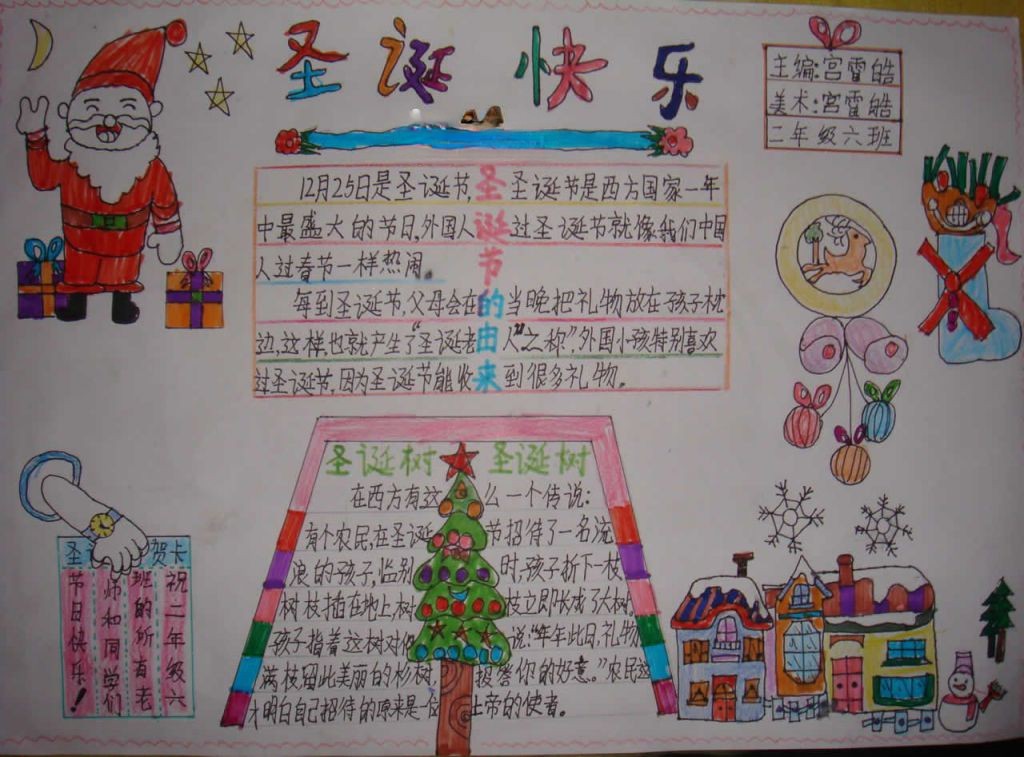 圣诞快乐
主编:宫雷皓
美术:宫雷皓
二年级六班
圣诞节的由来
12月25日是圣诞节,圣诞节是西方国家一年
中最盛大的节日,外国人过圣诞节就像我们中国
人过春节一样热闹。
每到圣诞节,父母会在当晚把礼物放在孩子枕
边,这样,也就产生了“圣诞老人”之称”,外国小孩特别喜欢
过圣诞节,因为圣诞节能收到很多礼物。
圣诞树 圣诞树
在西方有这么一个传说:
有个农民,在圣诞节招待了一名流
浪的孩子,临别时,孩子折下一枝
树枝插在地上,树枝立即长成了大树
孩子指着这树对他说:“年年此日,礼物
满枝,留此美丽的杉树,报答你的好意。”农民这
才明白自己招待的原来是一位上帝的使者。
圣 贺卡
祝二年级六
班的所有老
师和同学们
节日快乐!